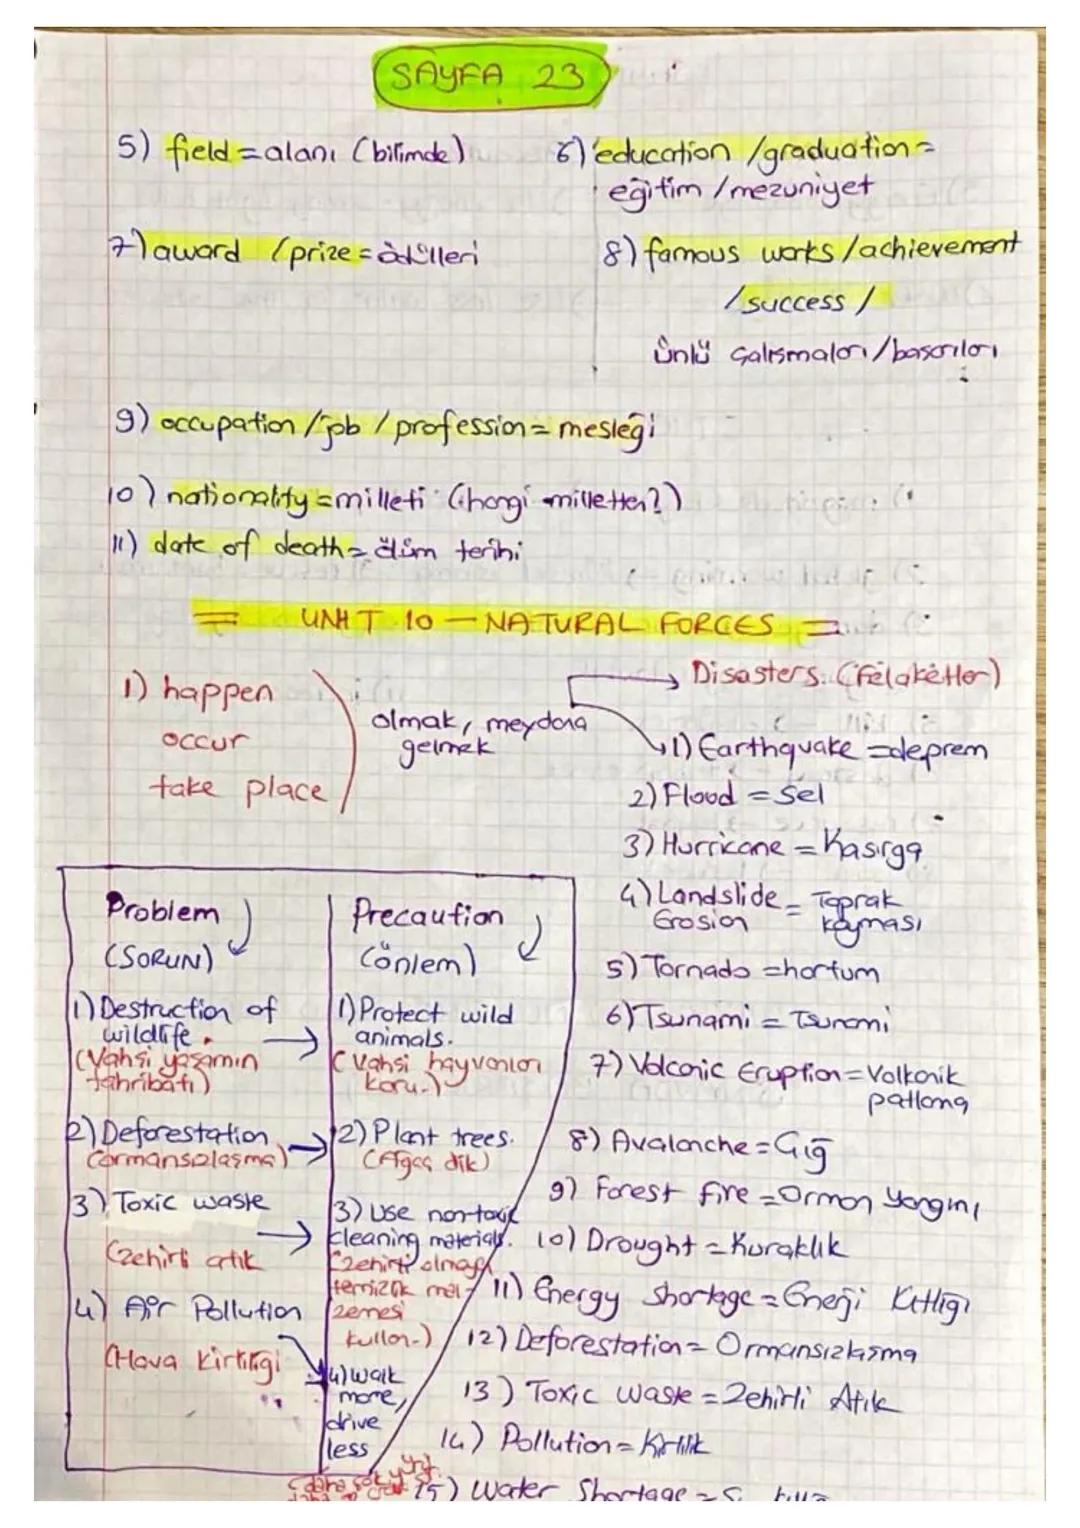 SAYFA 23
5) field = alanı (bilimde)
6) education / graduation =
eğitim / mezuniyet
7) award / prize = ödülleri
8) famous works / achievement
/ success /
ünlü çalışmaları / başarıları
9) occupation / job / profession = mesleği
10) nationality = milleti (hangi milletten?)
11) date of death = ölüm terihi
= UNIT 10 - NATURAL FORCES =
1) happen
occur
take place
olmak, meydana
gelmek
Disasters (Felaketler)
1) Earthquake = deprem
2) Flood = Sel
3) Hurricane = Kasırga
4) Landslide = Toprak
Erosion kayması
5) Tornado = hortum
6) Tsunami = Tsunami
7) Volcanic Eruption = Volkanik
patlama
8) Avalanche = Çığ
9) Forest fire = Orman Yangını
10) Drought = Kuraklık
11) Energy Shortage = Enerji Kıtlığı
12) Deforestation = Ormansızlaşma
13) Toxic Waste = Zehirli Atık
14) Pollution = Kirlilik
15) Water Shortage =
Problem
(SORUN)
1) Destruction of
wildlife.
(Vahşi yaşamın
tahribatı)
2) Deforestation
(ormansızlaşma)
3) Toxic waste
(zehirli atık
4) Air Pollution
(Hava Kirliliği
Precaution
(önlem)
1) Protect wild
animals.
(Vahşi hayvanları
koru.)
2) Plant trees.
(Ağaç dik)
3) Use nontoxic
cleaning materials.
(zehirli olmayan
temizlik mal-
zemesi
kullan.)
4) walk
more,
drive
less
(daha çok yürü,
daha